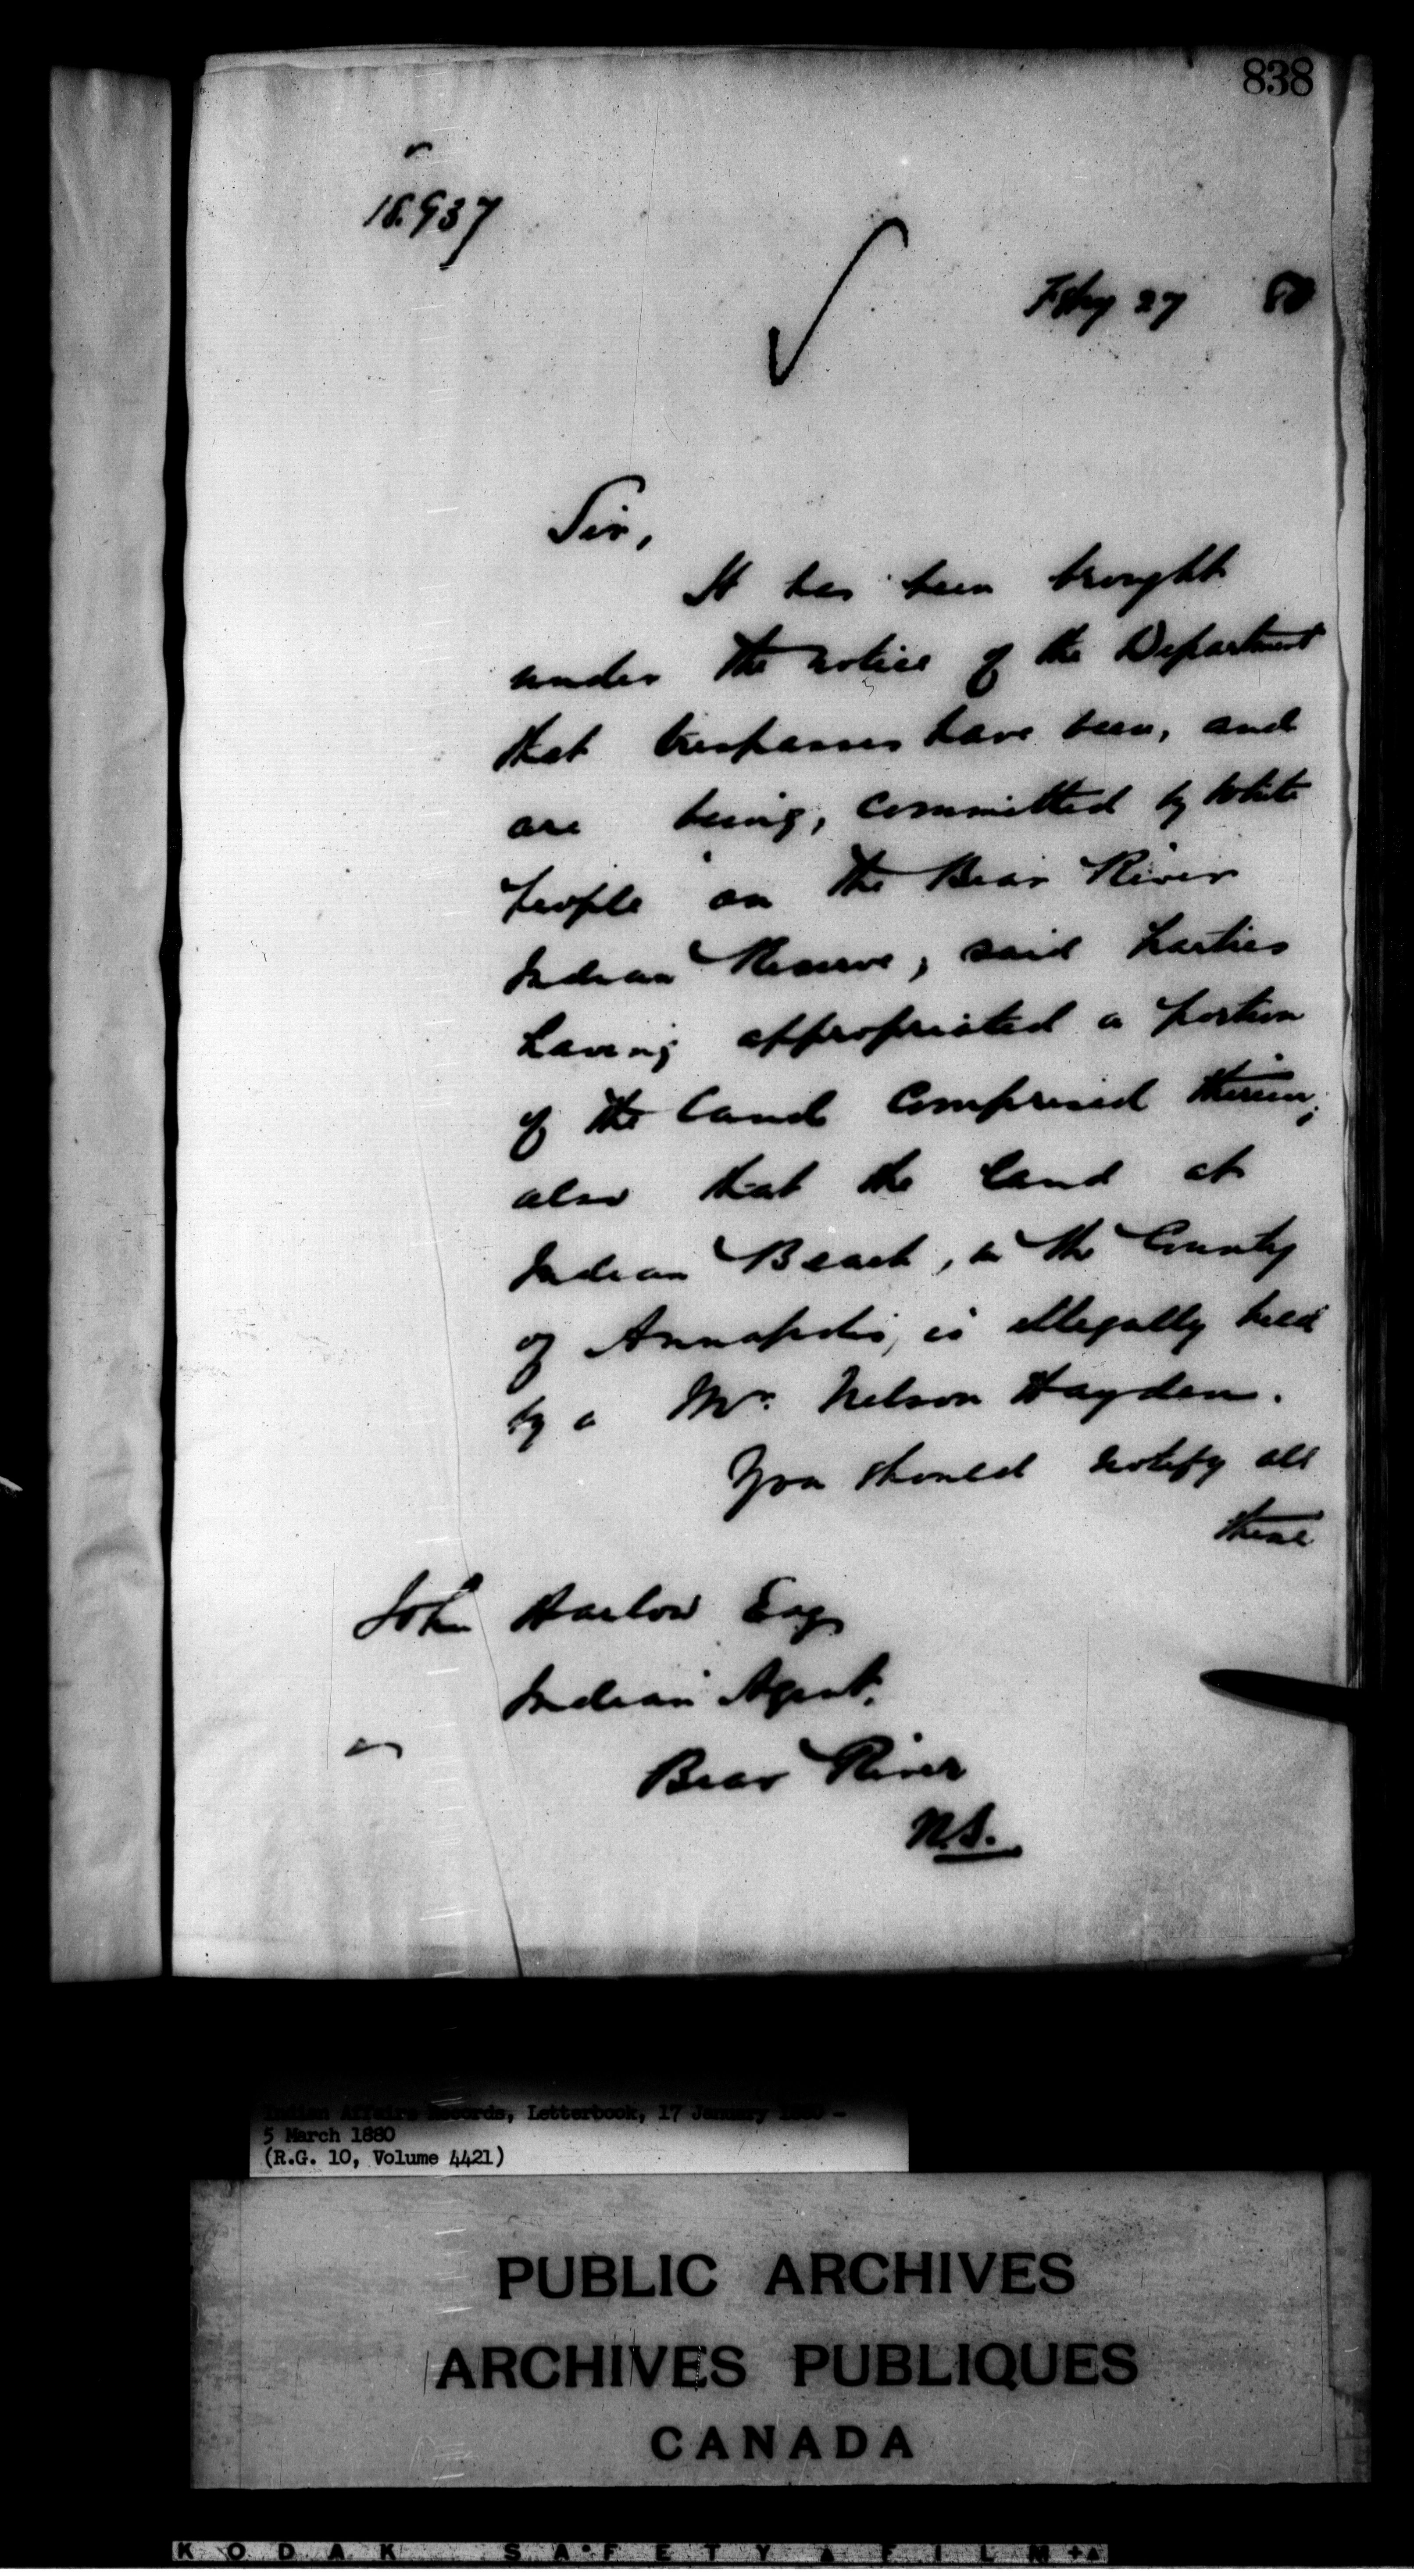 838
18.937
Feby 27 80
Sir,
It has been brought
under the notice of the Department
that trespasses have been, and
are being, committed by White
people on the Bear River
Indian Reserve, said parties
having appropriated a portion
of the land comprised therein;
also that the land at
Indian Beach, in the County
of Annapolis, is illegally held
by a Mr. Nelson Hayden.
You should notify all
these
John Harlow Esq
Indian Agent.
Bear River
N.S.
Indian Affairs Records, Letterbook, 17 January 1880 -
5 March 1880
(R.G. 10, Volume 4421)
PUBLIC ARCHIVES
ARCHIVES PUBLIQUES
CANADA
KODAK SAFETY FILM